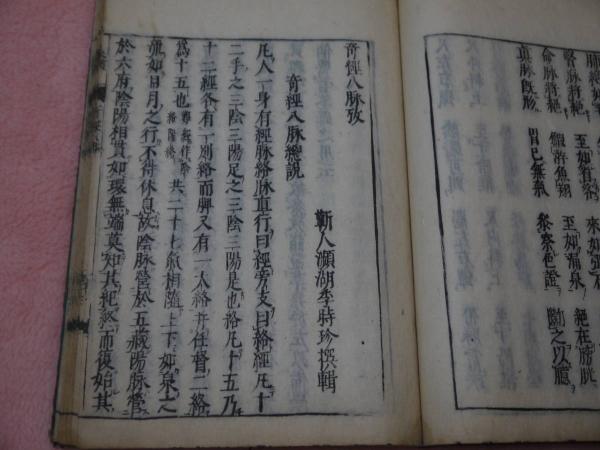 腎脉將絕 至如省客 來如彈石
命脉將絕 鰕游魚翔 至如湧泉 絕在膀胱
真脉既形 胃已無氣 參察色證 斷之以臆
奇經八脉攷
蘄人瀕湖李時珍撰輯
奇經八脉總說
凡人一身有經脉絡脉直行曰經旁支曰絡經凡十
二手之三陰三陽足之三陰三陽是也絡凡十五乃
十二經各有一別絡而脾又有一大絡并任督二絡
爲十五也難經作陰絡陽絡共二十七氣相隨上下如泉之
流如日月之行不得休息故陰脉營於五藏陽脉營
於六府陰陽相貫如環無端莫知其紀終而復始其